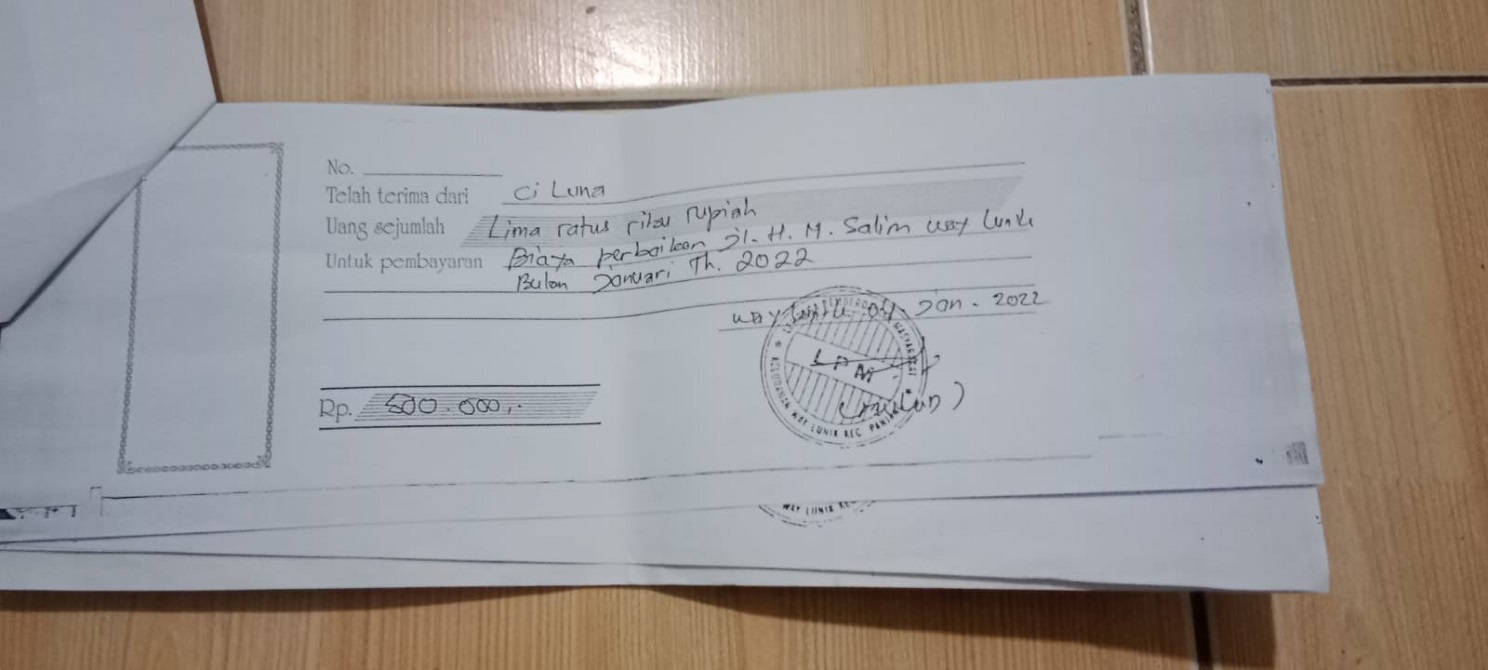 No.
Telah terima dari Ci Luna
Uang sejumlah Lima ratus ribu rupiah
Untuk pembayaran Biaya perbaikan Jl. H. M. Salim way lunik
Bulan Januari Th. 2022
way lunik 04 Jan - 2022
MASYARAKAT
LPM
KELURAHAN WAY LUNIK KEC. PANJANG
Rp. 500.000,-
WAY LUNIK KEC